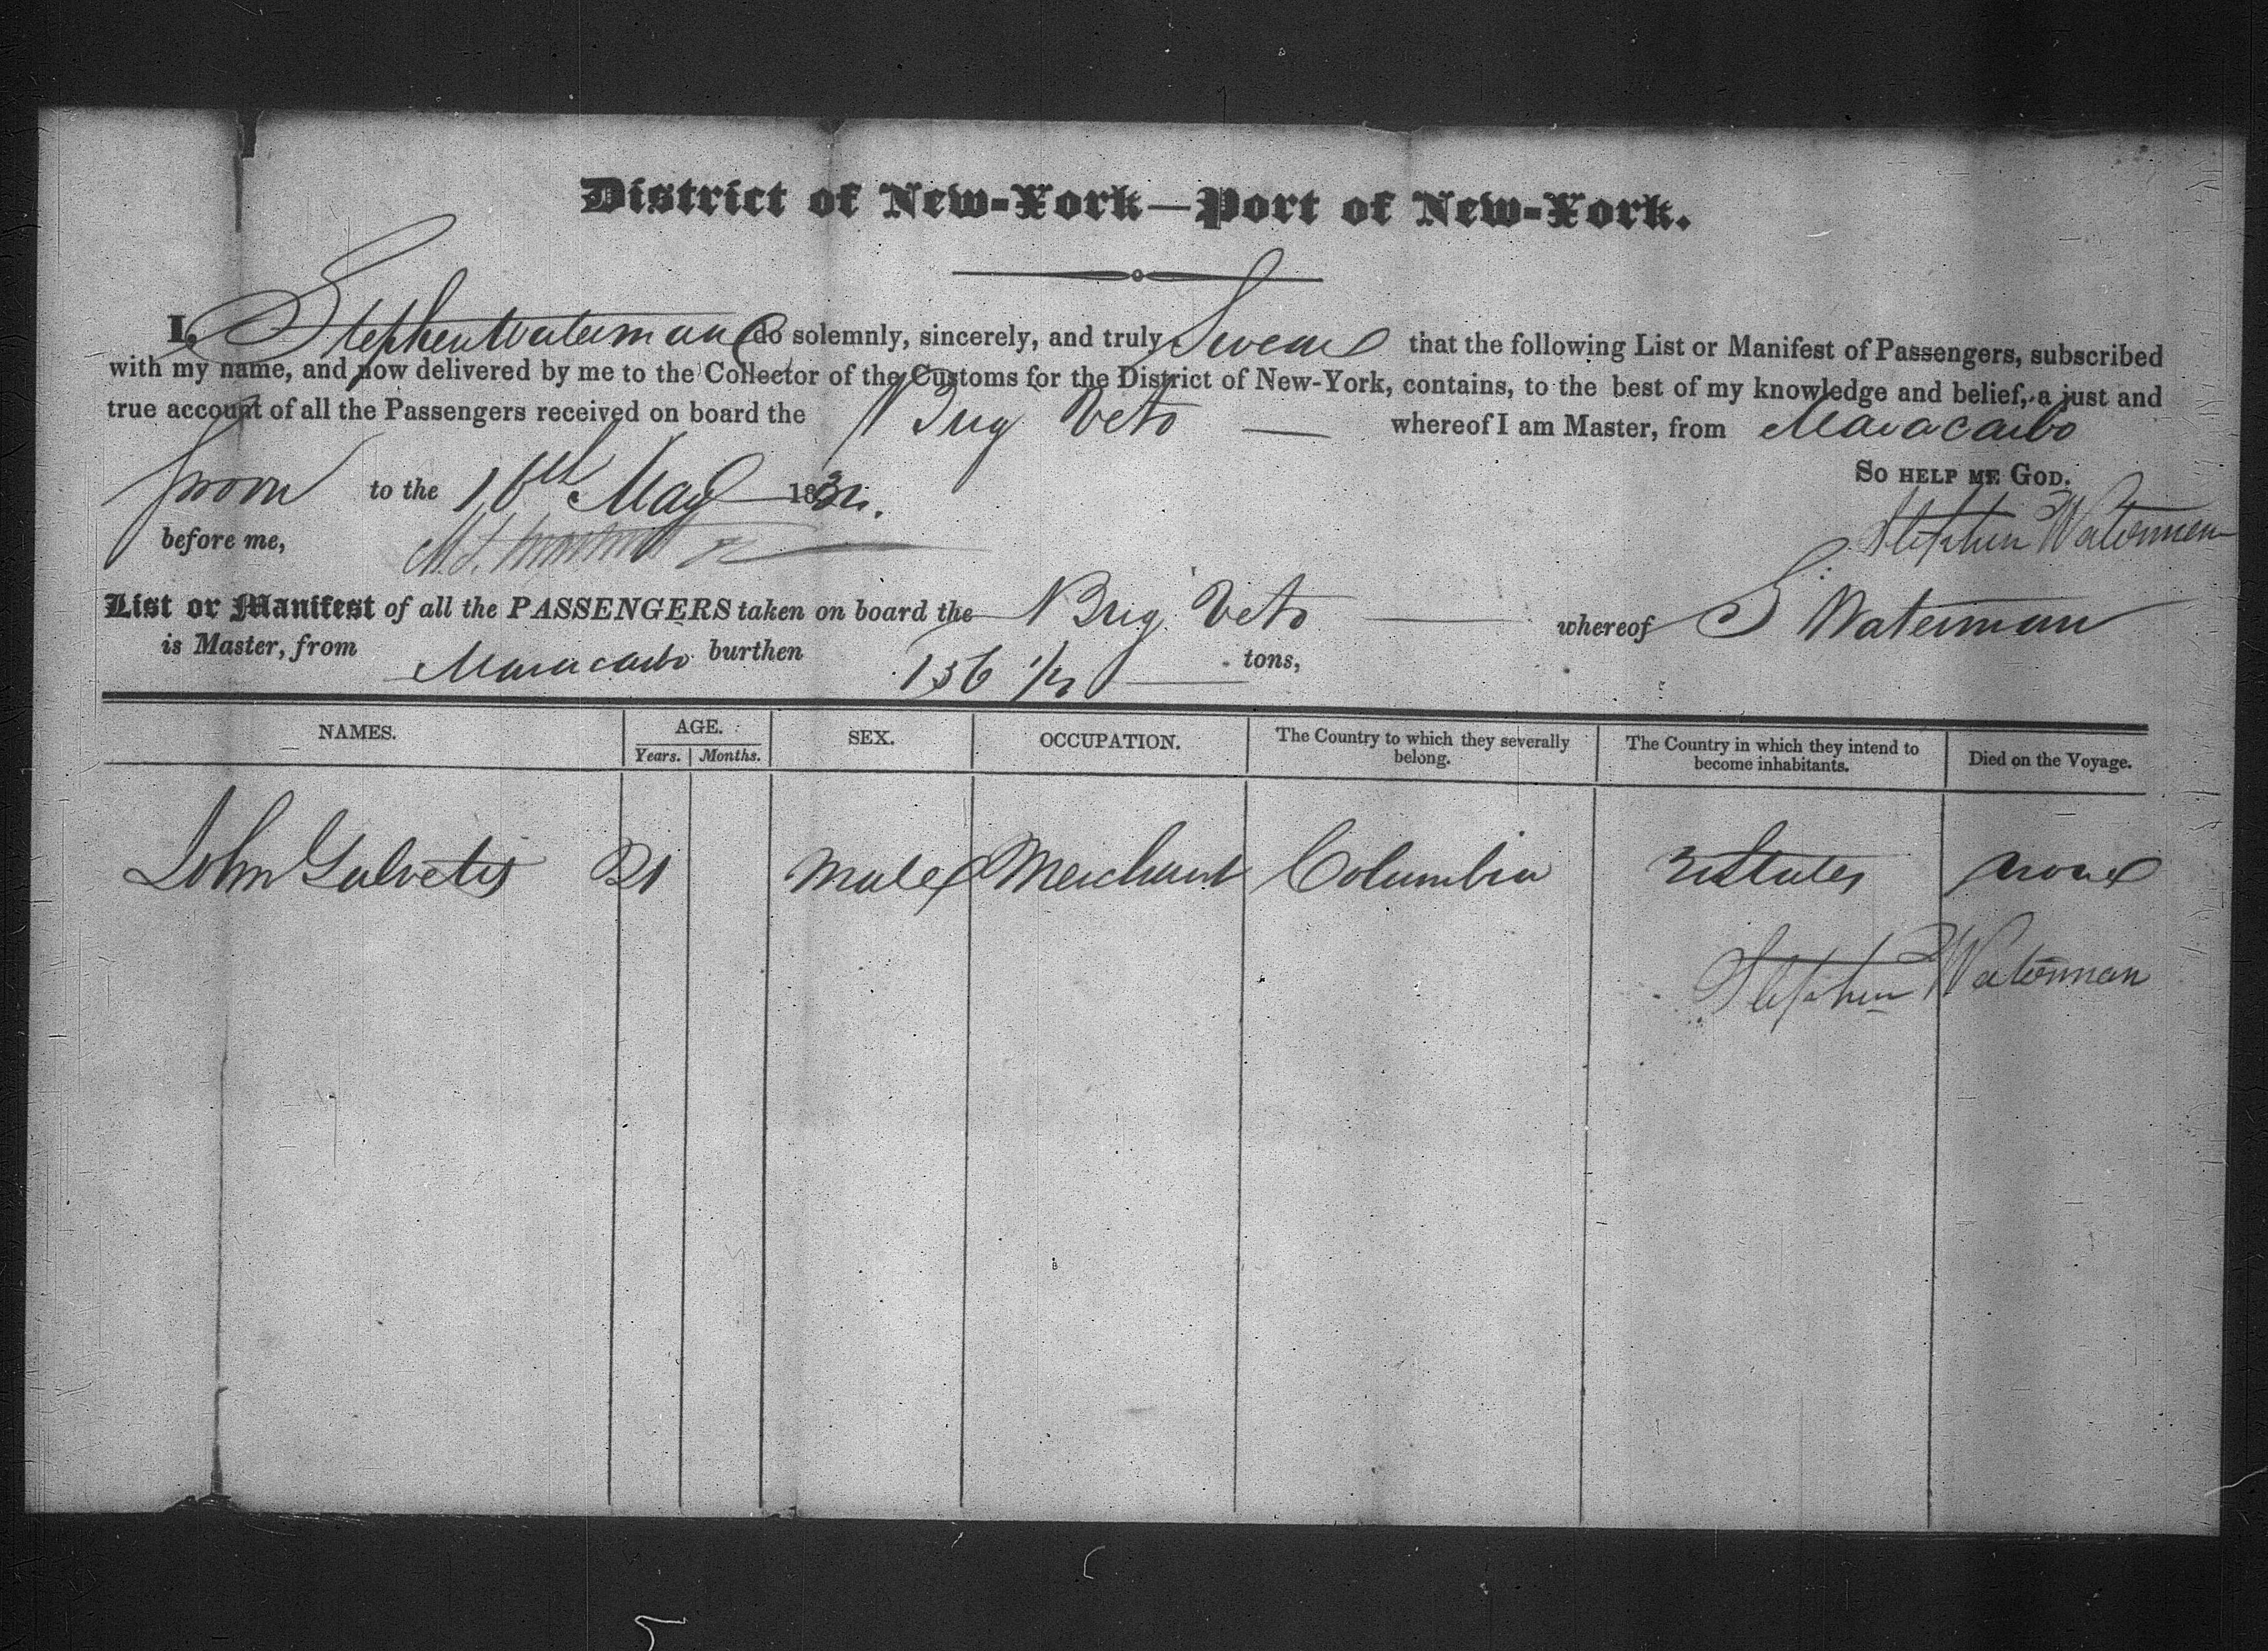 District of New-York—Port of New-York.
I, Stephen Waterman do solemnly, sincerely, and truly Swear that the following List or Manifest of Passengers, subscribed
with my name, and now delivered by me to the Collector of the Customs for the District of New-York, contains, to the best of my knowledge and belief, a just and
true account of all the Passengers received on board the Brig Veto — whereof I am Master, from Maracaibo
So HELP ME GOD.
Sworn to the 16th May 183
before me,
Stephen Waterman
List or Manifest of all the PASSENGERS taken on board the Brig Veto — whereof S Waterman
is Master, from Maracaibo burthen 136 1/2 tons,
NAMES. AGE. SEX. OCCUPATION. The Country to which they severally belong. The Country in which they intend to become inhabitants. Died on the Voyage.
Years. Months.
John Galvetis 21 Male Merchant Columbia States None
Stephen Waterman